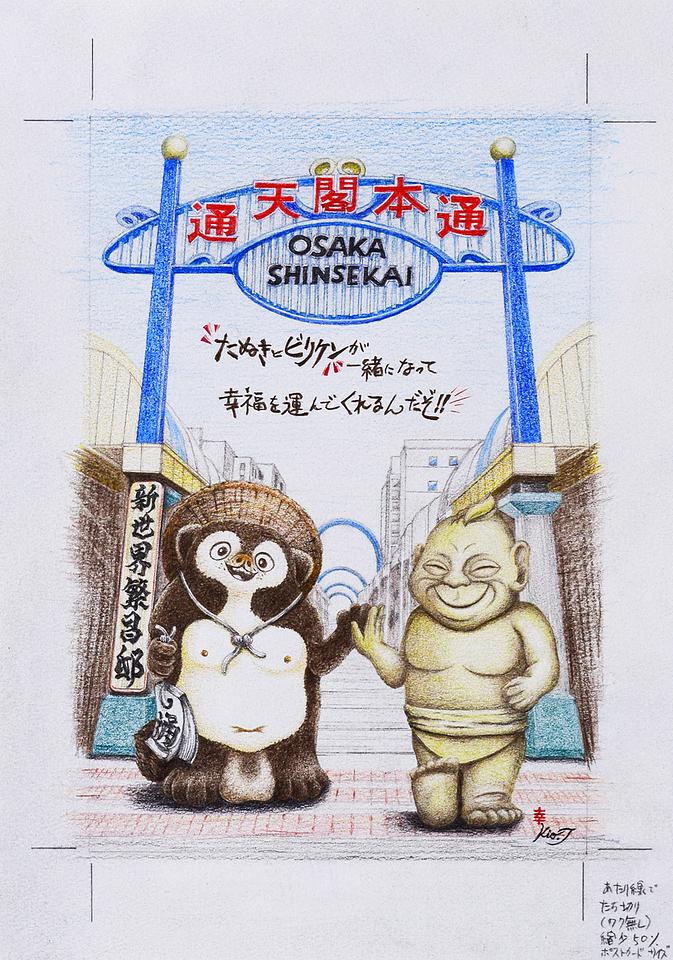 通天閣本通
OSAKA
SHINSEKAI
たぬきとビリケンが
一緒になって
幸福を運んでくれるんだぞ!!
新世界繁昌邸
通
幸
Kio.J
あたり線で
たち切り
(ワク無し)
縮少50%
ポストカードサイズ